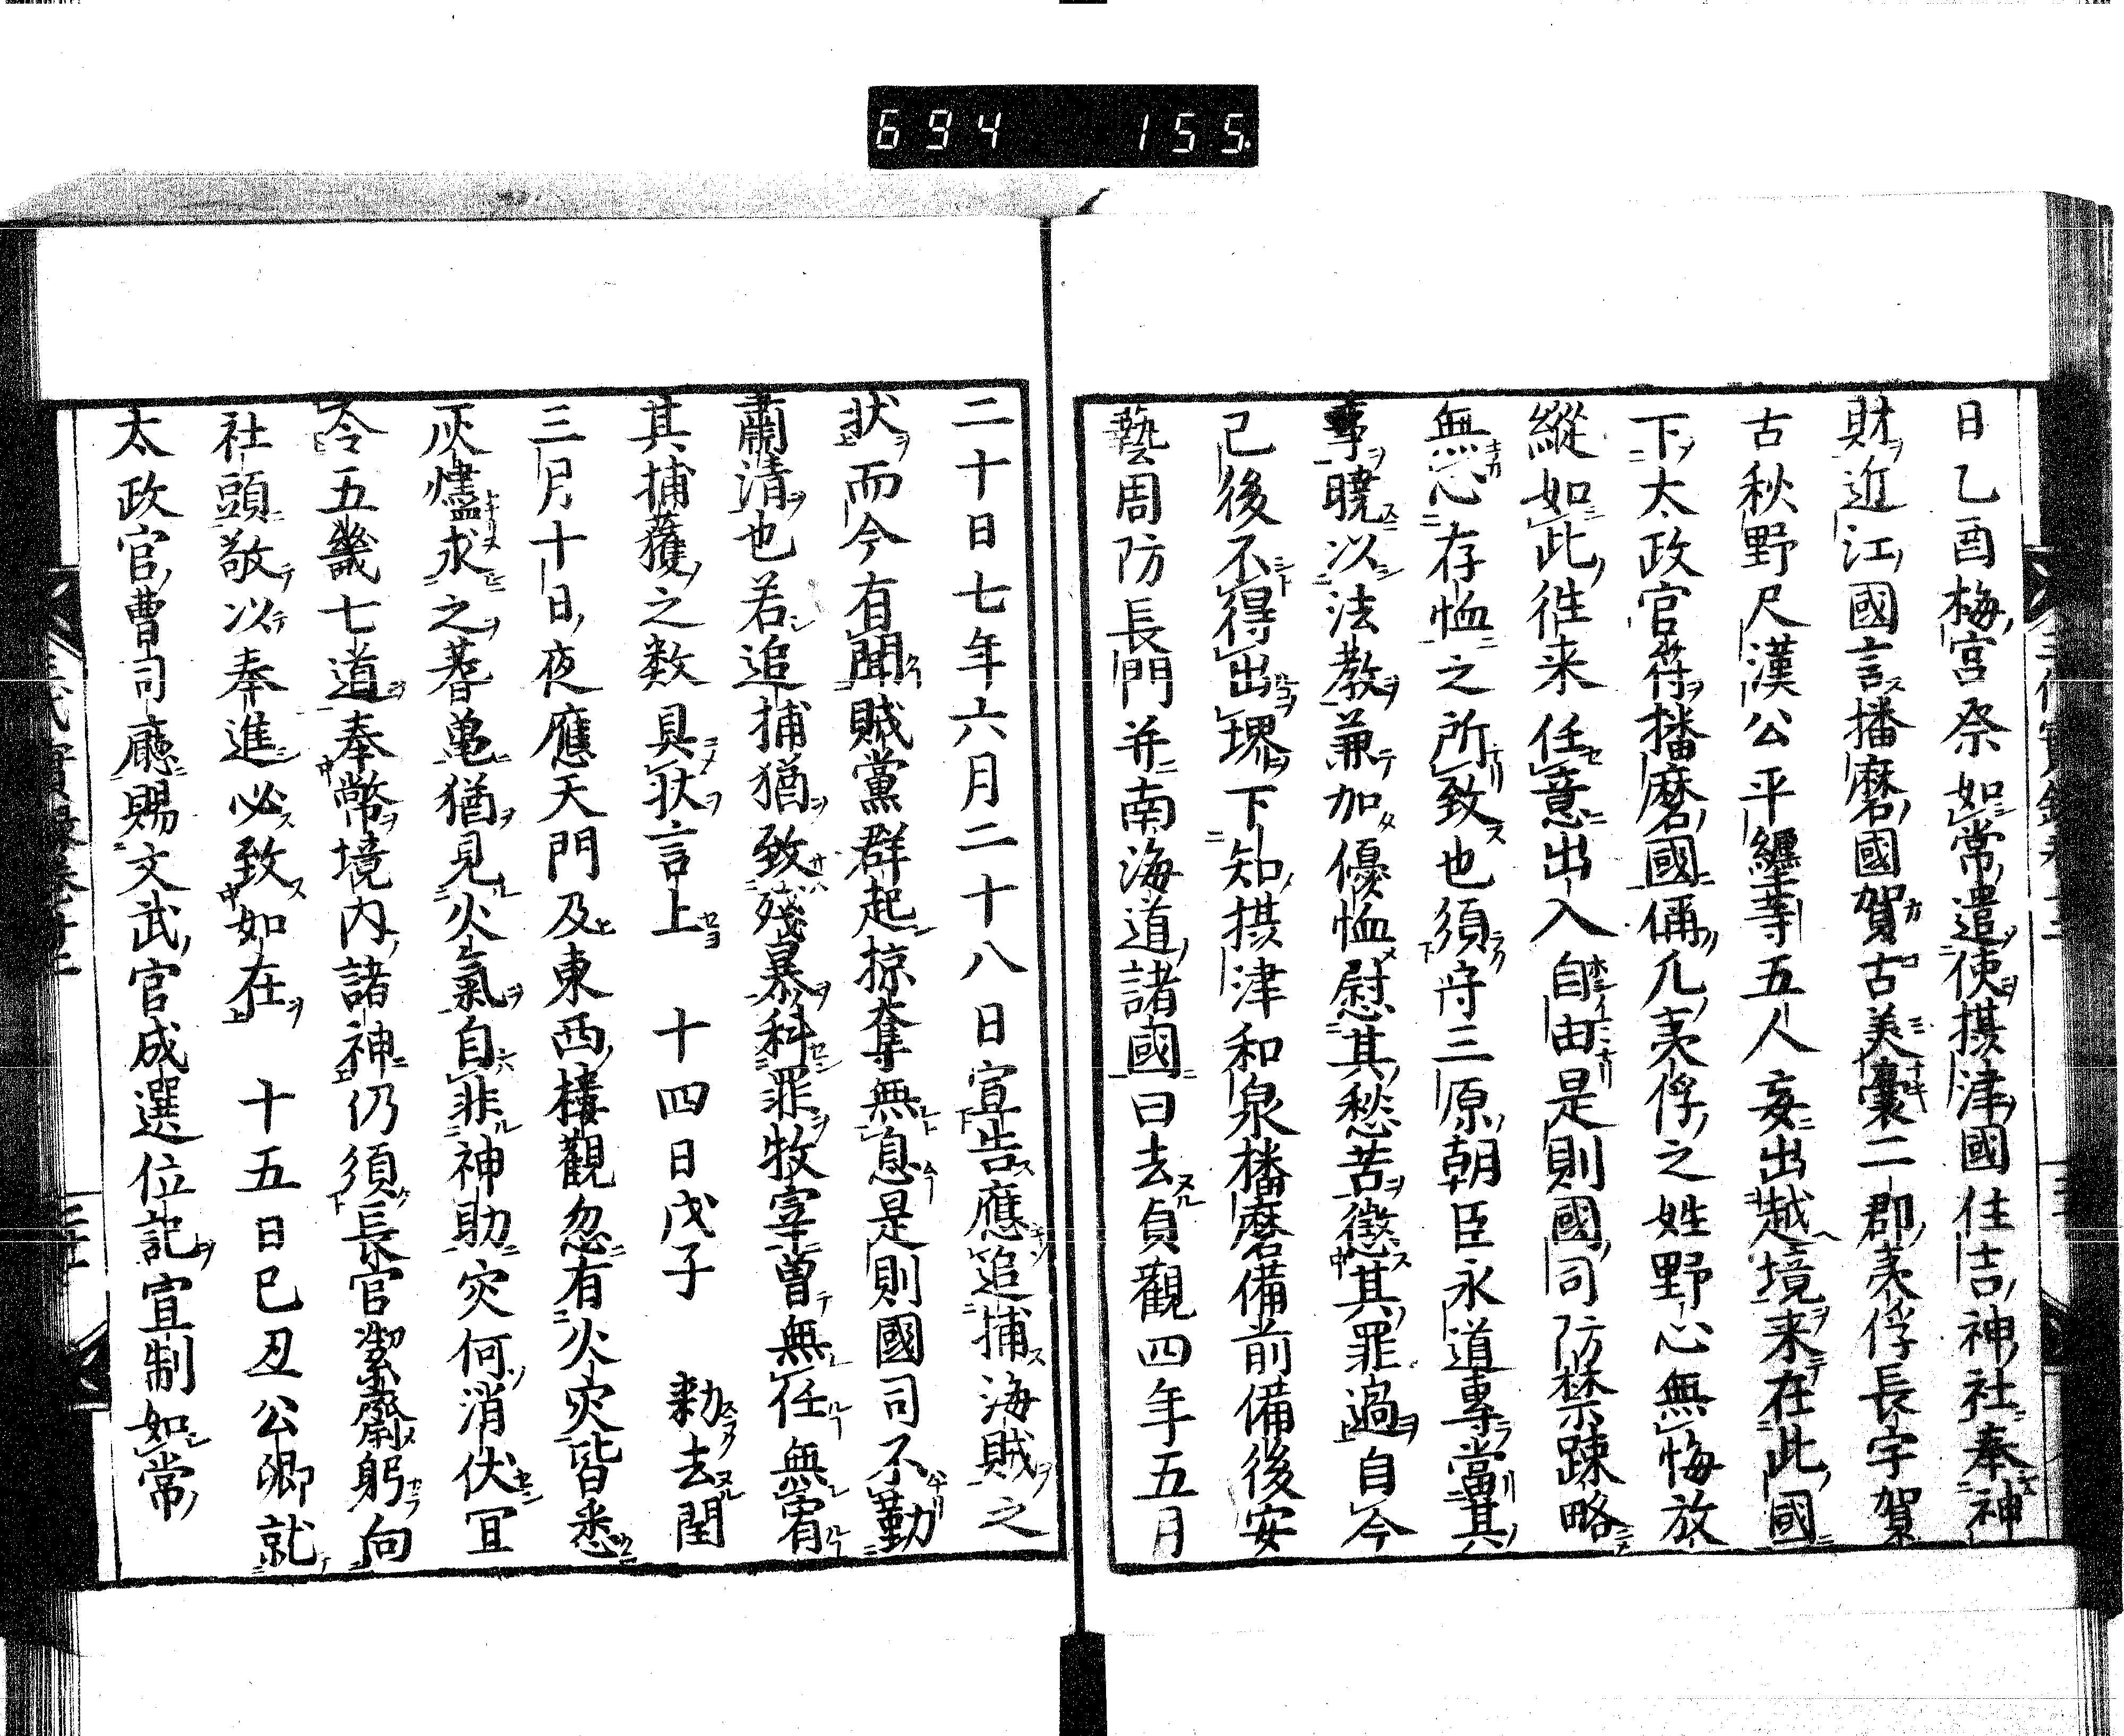 694 155.
日乙酉梅宮祭如常遣使摂津國住吉神社奉神
財近江國言播磨國賀古美囊二郡夷俘長宇賀
古秋野尺漢公平纒等五人妄出越境来在此國
下太政官符播磨國偁凢夷俘之姓野心無悔放
縱如此徃来任意出入自由是則國司防禁踈略
無心存恤之所致也須守三原朝臣永道專當其
事曉以法教兼加優恤慰其愁苦懲其罪過自今
已後不得出堺下知摂津和泉播磨備前備後安
藝周防長門并南海道諸國曰去貞觀四年五月
二十日七年六月二十八日宣告應追捕海賊之
状而今有聞賊黨群起掠奪無息是則國司不勤
肅清也若追捕猶致殘暴科罪牧宰曽無任無宥
其捕獲之数具状言上 十四日戊子 勅去閏
三月十日夜應天門及東西樓觀忽有火灾皆悉
灰燼求之蓍亀猶見火氣自非神助灾何消伏冝
令五畿七道奉幣境内諸神仍須長官潔齋躬向
社頭敬以奉進必致如在 十五日巳丑公卿就
太政官曹司廳賜文武官成選位記宣制如常